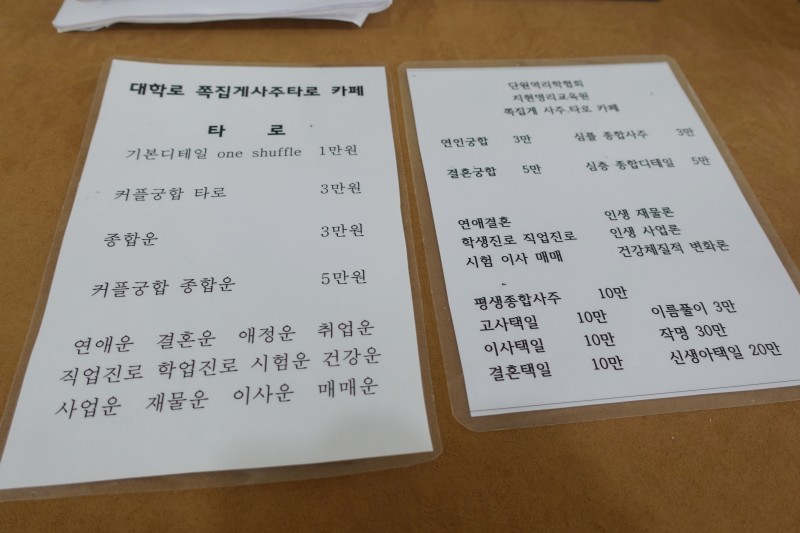 대학로 쪽집게사주타로 카페
타 로
기본디테일 one shuffle 1만원
커플궁합 타로 3만원
종합운 3만원
커플궁합 종합운 5만원
연애운 결혼운 애정운 취업운
직업진로 학업진로 시험운 건강운
사업운 재물운 이사운 매매운
단원역리학협회
지현명리교육원
쪽집게 사주.타로 카페
연인궁합 3만 심플 종합사주 3만
결혼궁합 5만 심층 종합디테일 5만
연애결혼 인생 재물론
학생진로 직업진로 인생 사업론
시험 이사 매매 건강체질적 변화론
평생종합사주 10만
고사택일 10만 이름풀이 3만
이사택일 10만 작명 30만
결혼택일 10만 신생아택일 20만